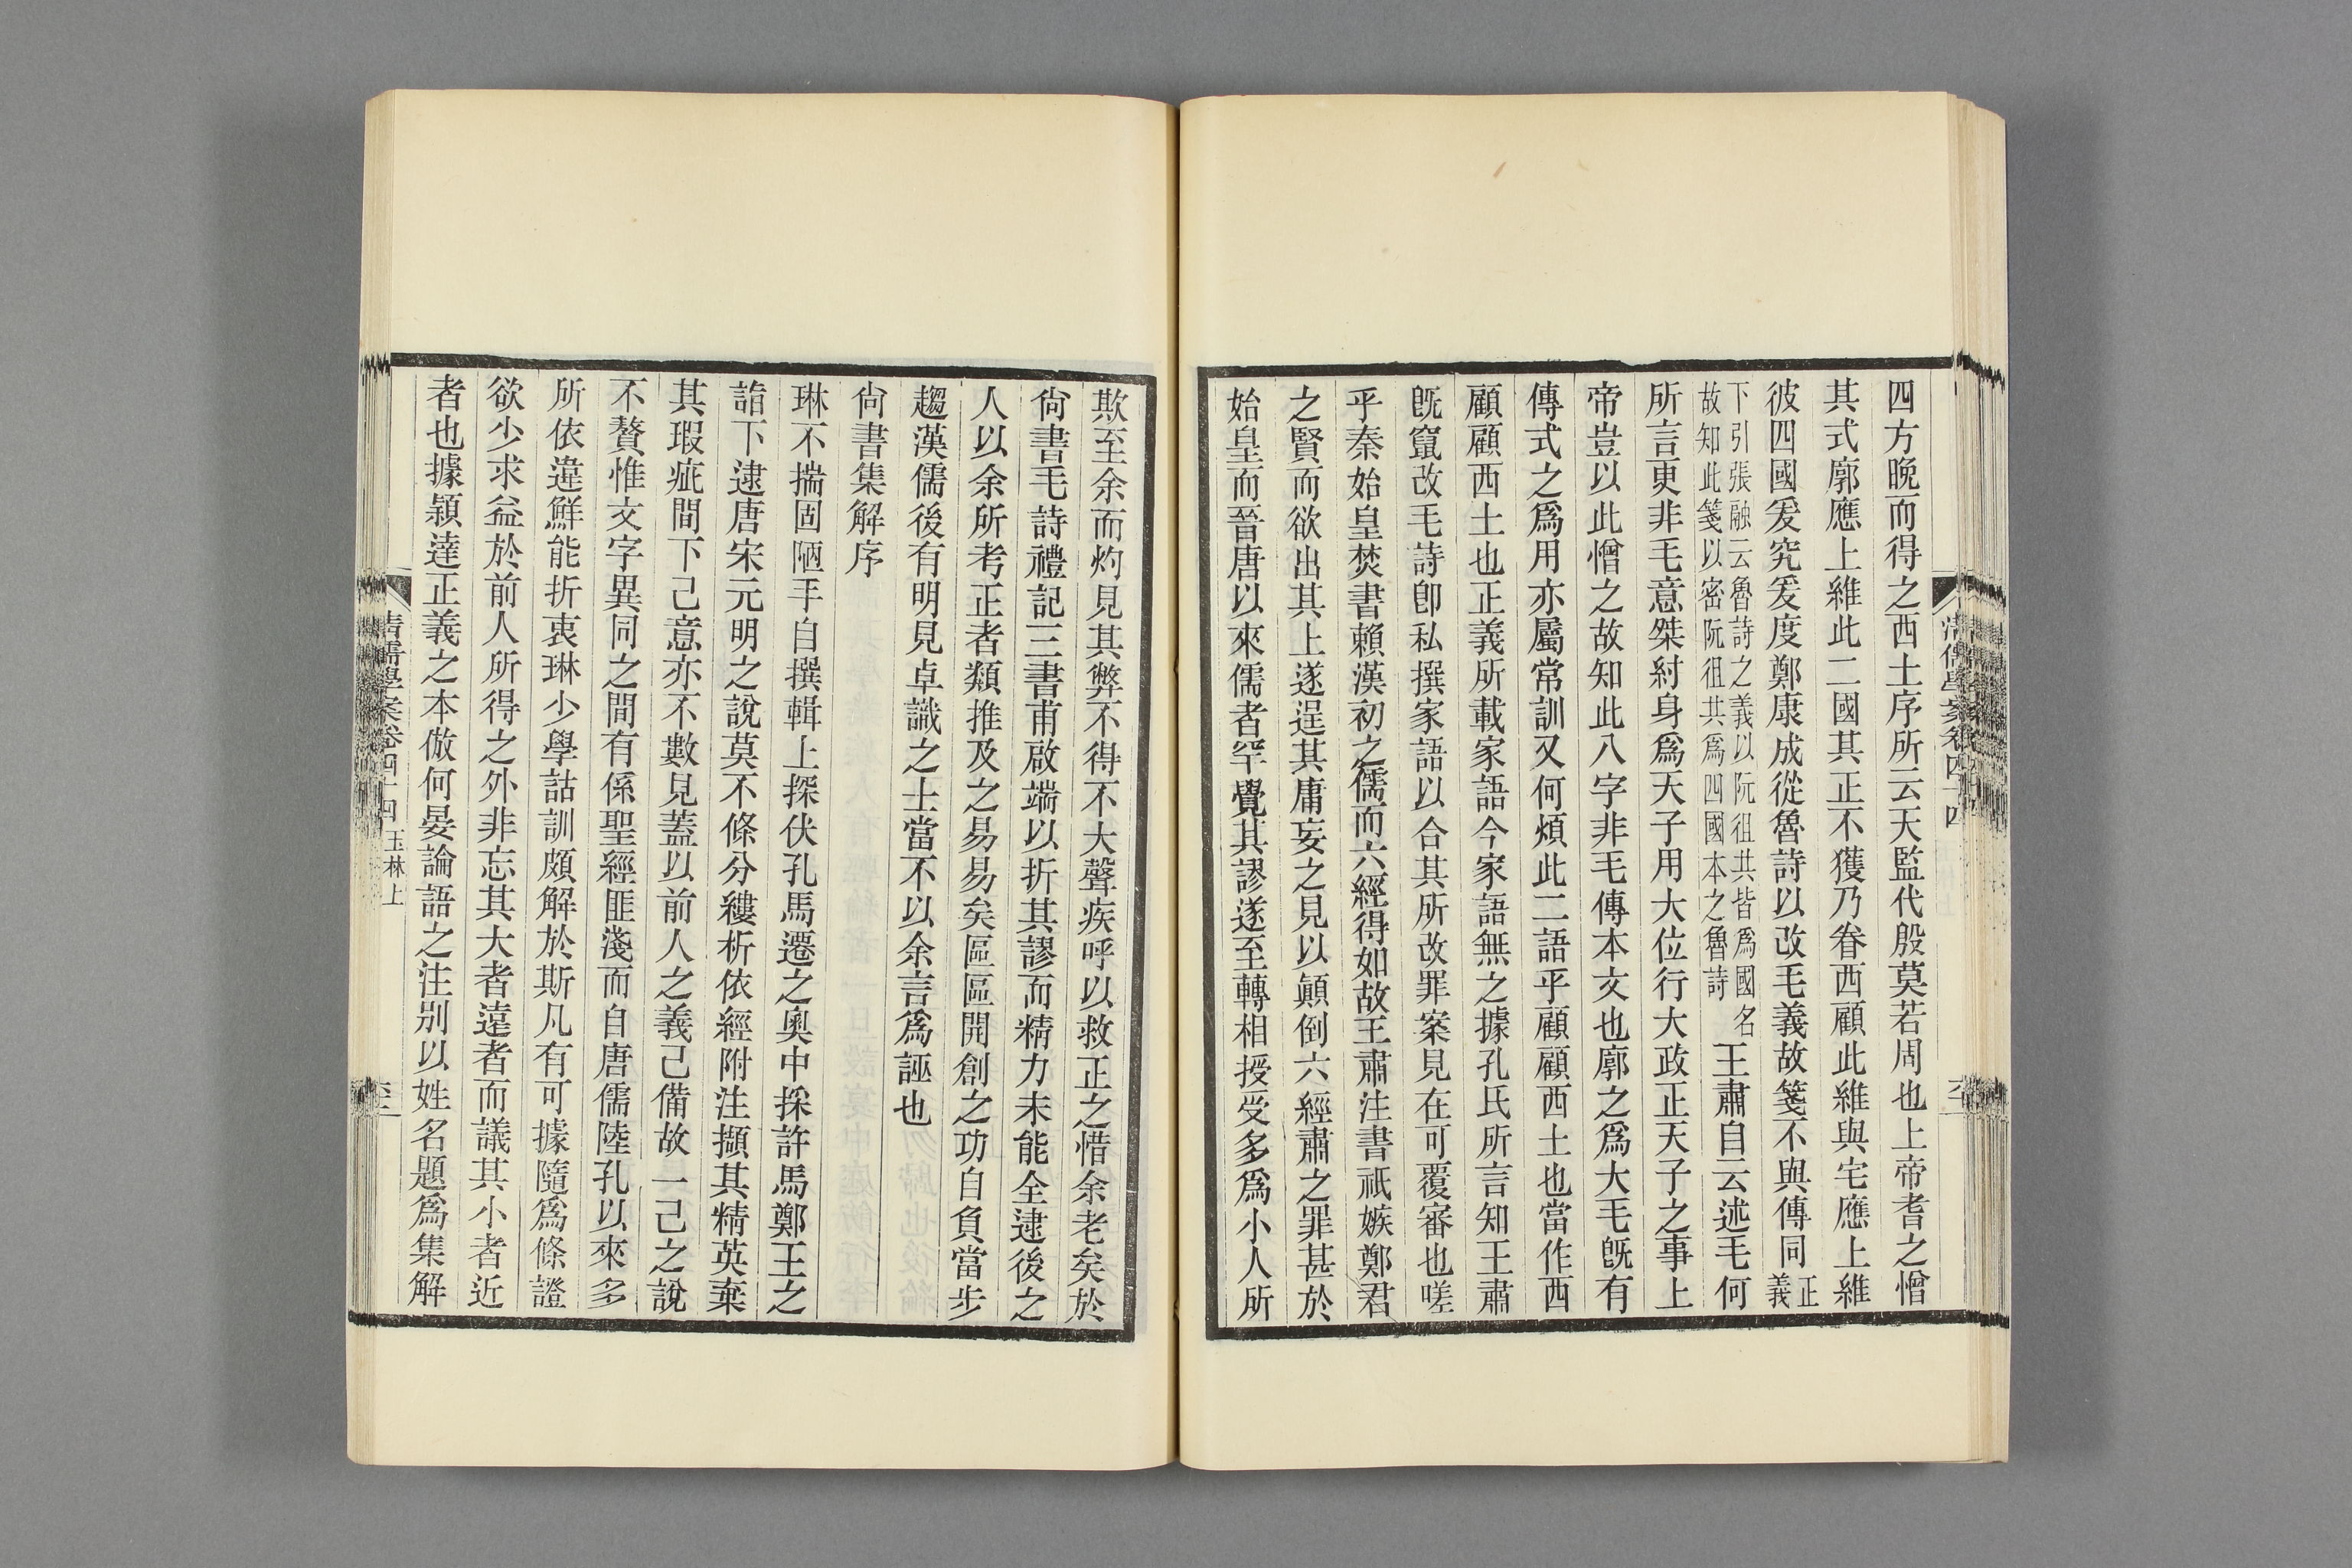 四方晚而得之西土序所云天監代殷莫若周也上帝耆之憎
其式廓應上維此二國其正不獲乃眷西顧此維與宅應上維
彼四國爰究爰度鄭康成從魯詩以改毛義故箋不與傳同正義
下引張融云魯詩之義以阮徂共皆爲國名
故知此箋以密阮徂共爲四國本之魯詩
王肅自云述毛何
所言更非毛意桀紂身爲天子用大位行大政正天子之事上
帝豈以此憎之故知此八字非毛傳本文也廓之爲大毛旣有
傳式之爲用亦屬常訓又何煩此二語乎顧顧西土也當作西
顧顧西土也正義所載家語今家語無之據孔氏所言知王肅
旣竄改毛詩卽私撰家語以合其所改罪案見在可覆審也嗟
乎秦始皇焚書賴漢初之儒而六經得如故王肅注書祇嫉鄭君
之賢而欲出其上遂逞其庸妄之見以顚倒六經肅之罪甚於
始皇而晉唐以來儒者罕覺其謬遂至轉相授受多爲小人所
欺至余而灼見其弊不得不大聲疾呼以救正之惜余老矣於
尙書毛詩禮記三書甫啟端以折其謬而精力未能全逮後之
人以余所考正者類推及之易易矣區區開創之功自負當步
趨漢儒後有明見卓識之士當不以余言爲誣也
尙書集解序
琳不揣固陋手自撰輯上探伏孔馬遷之奧中採許馬鄭王之
詣下逮唐宋元明之說莫不條分縷析依經附注擷其精英棄
其瑕疵間下己意亦不數見蓋以前人之義已備故一己之說
不贅惟文字異同之間有係聖經匪淺而自唐儒陸孔以來多
所依違鮮能折衷琳少學詁訓頗解於斯凡有可據隨爲條證
欲少求益於前人所得之外非忘其大者遠者而議其小者近
者也據穎達正義之本倣何晏論語之注別以姓名題爲集解
清儒學案卷四十四 玉林上